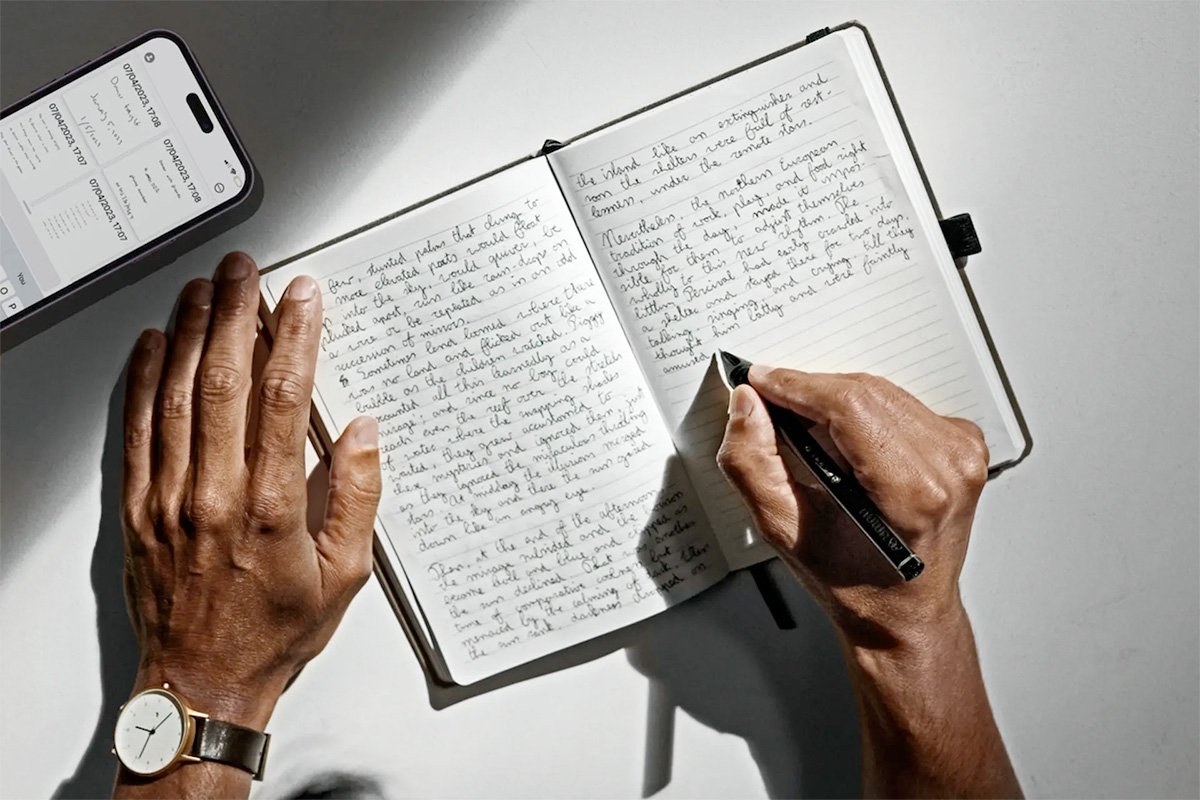 07/04/2023, 17:08
07/04/2023, 17:08
07/04/2023, 17:07
07/04/2023, 17:07
You
O P
few, stunted palms that clung to
more elevated parts would float
into the sky, would quiver, be
plucked apart, run like rain-drops on
a wire or be repeated as in an odd
succession of mirrors.
Sometimes land loomed where there
was no land and flicked out like a
bubble as the children watched. Piggy
all this learnedly as a
and since no boy could
reach even the reef over the stretch
of water where the snapping sharks
waited, they grew accustomed to
these mysteries and ignored them, just
as they ignored the miraculous, throbbing
stars. At midday the illusions merged
into the sky and there the sun gazed
down like an angry eye
Then, at the end of the afternoon
the mirage subsided and the horizon
become level and blue and clipped as
the sun declined. That was another
time of comparative coolness but
menaced by the coming of dark. When
the sun sank, darkness dropped on
the island like an extinguisher and
soon the shelters were full of rest-
lessness, under the remote stars.
Nevertheless, the northern European
tradition of work, play, and food right
through the day, made it impos-
sible for them to adjust themselves
wholly to this new rhythm. The
littlun Percival had early crawled into
a shelter and stayed there for two days,
talking, singing, and crying, till they
thought him batty and were faintly
amused